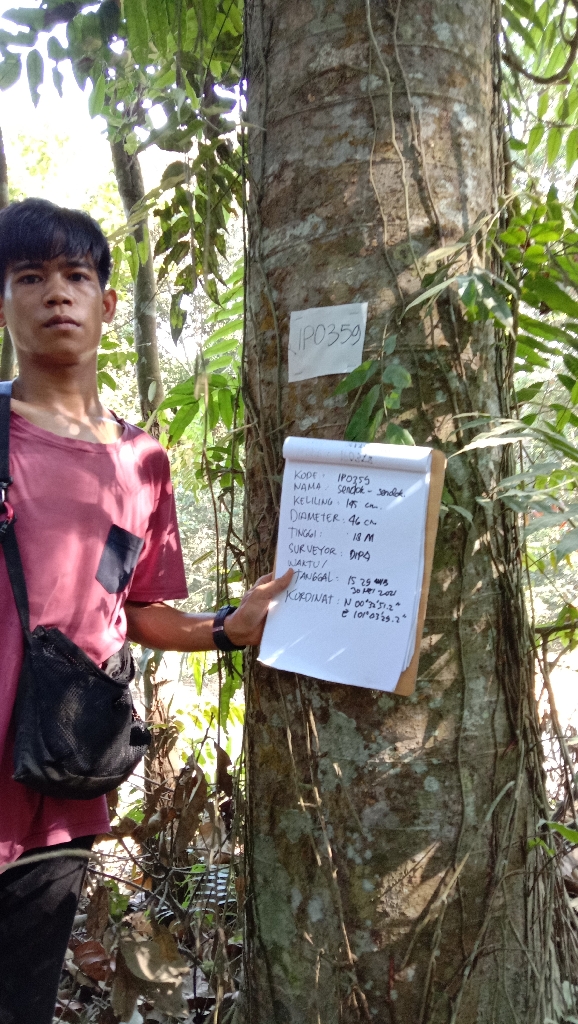 IP0359
KODE : IP0359
NAMA : sendok - sendok
KELILING : 145 cm
DIAMETER : 46 cm
TINGGI : 18 M
SURVEYOR : DIPO
WAKTU /
TANGGAL : 15 29 WIB
30 MEI 2021
KORDINAT : N 00°32'51.2"
E 101°03'29.2"